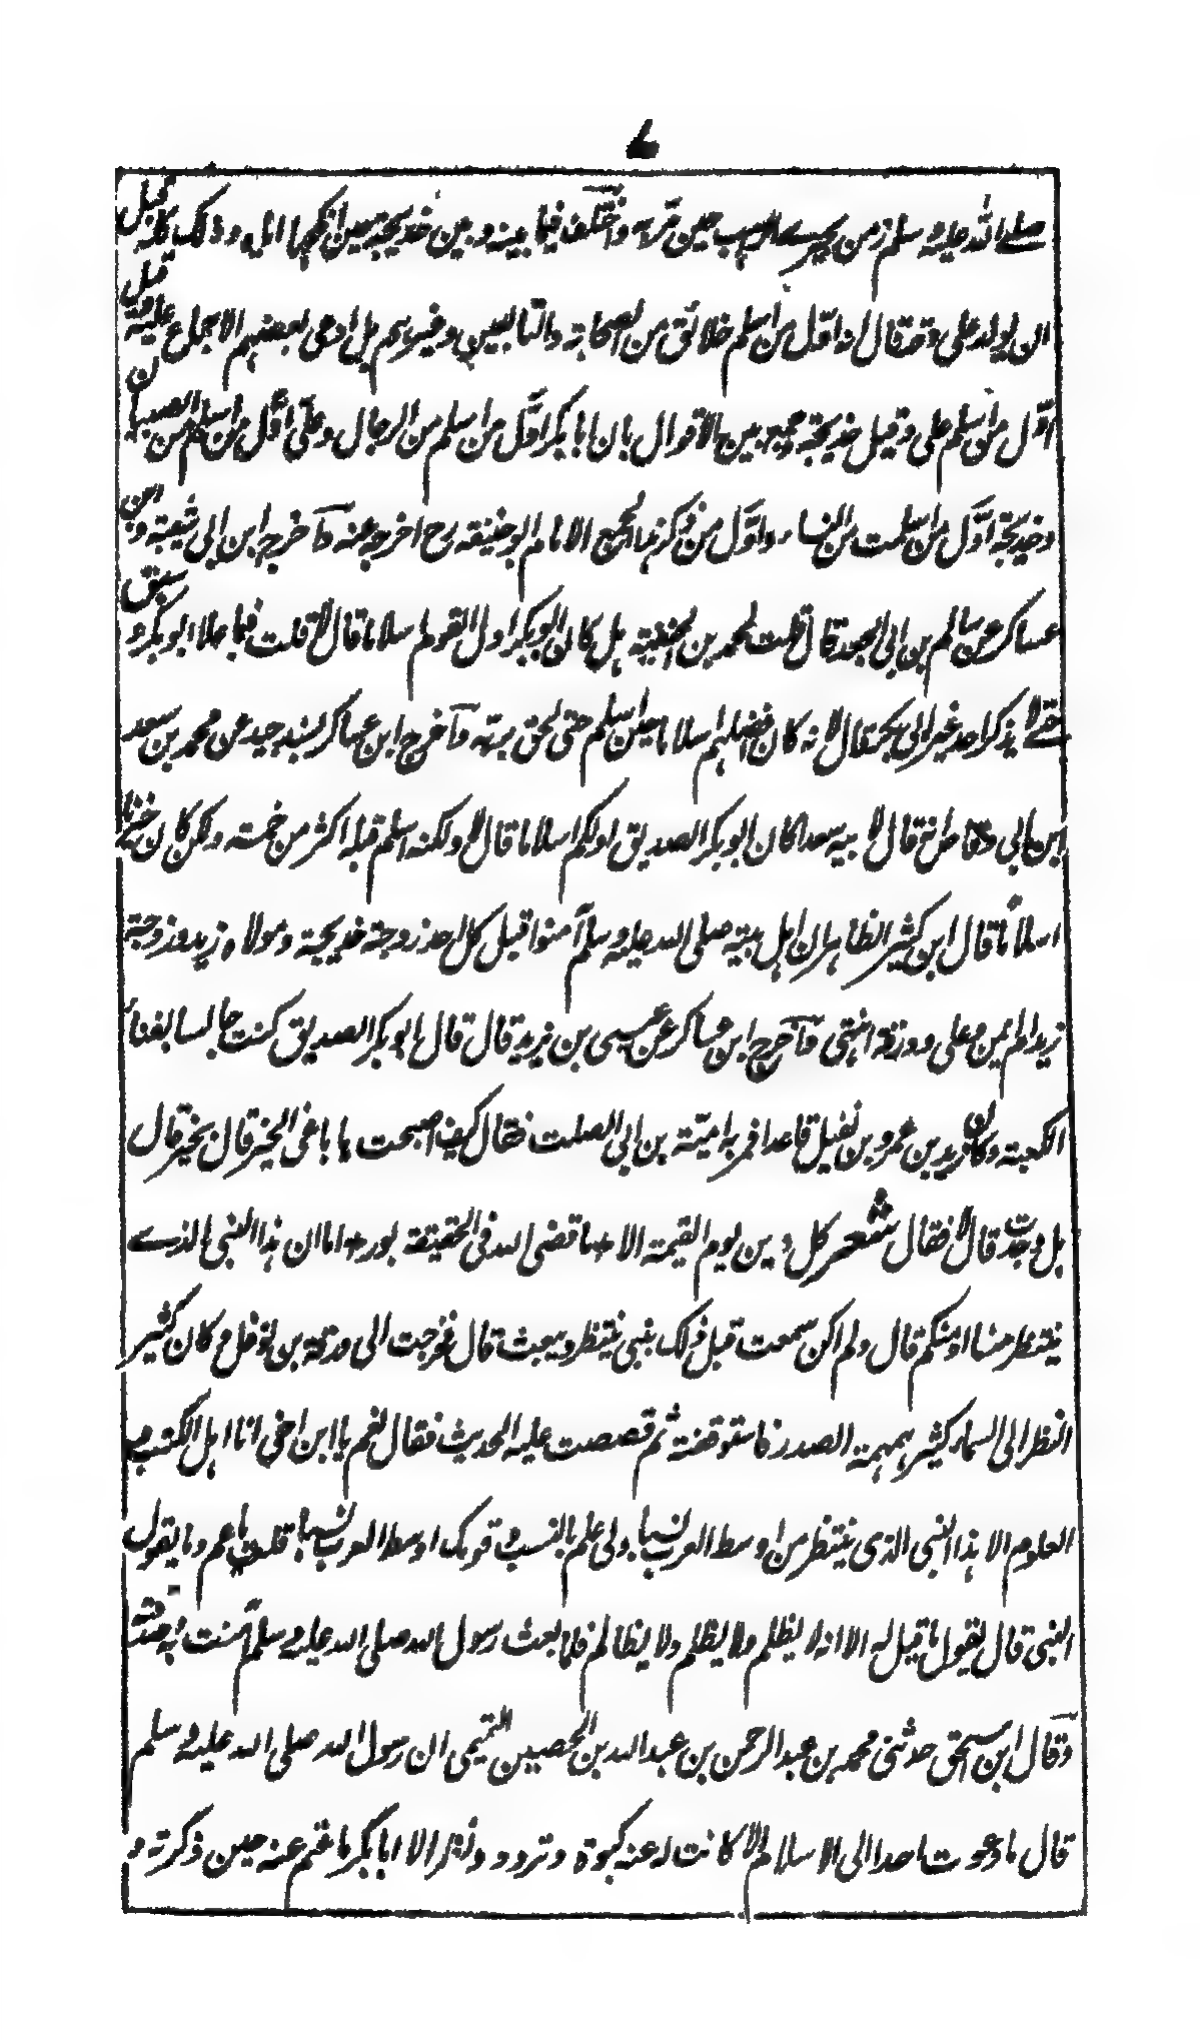 ۷
صلے اللہ علیہ وسلم زمن بحیرے الراہب حین مر بہ واختلف فیما بینہ وبین خدیجۃ حین انکحہا ایاہ وذلک کلہ قبل
ان یولد علی وقد قال انہ اول من اسلم خلائق من الصحابۃ والتابعین وغیرہم بل ادعی بعضہم الاجماع علیہ وقیل ان
اول من اسلم علی وقیل خدیجۃ وجمع بین الاقوال بان ابا بکر اول من اسلم من الرجال وعلی اول من اسلم من الصبیان
وخدیجۃ اول من اسلمت من النساء واول من ذکر ہذا الجمع الامام ابو حنیفۃ رح اخرجہ عنہ واخرج ابن ابی شیبۃ وابن
عساکر عن سالم بن ابی الجعد قال قلت لمحمد بن الحنفیۃ ہل کان ابو بکر اول القوم اسلاما قال لا قلت فبما علا ابو بکر وسبق
حتے لا یذکر احد غیر ابی بکر قال لانہ کان افضلہم اسلاما حین اسلم حتی لحق بربہ واخرج ابن عساکر بسند جید عن محمد بن سعد
ابن ابی وقاص انہ قال لابیہ سعد اکان ابو بکر الصدیق اولکم اسلاما قال لا ولکنہ اسلم قبلہ اکثر من خمسۃ ولکن کان خیرنا
اسلاما قال ابن کثیر الظاہر ان اہل بیتہ صلی اللہ علیہ وسلم آمنوا قبل کل احد زوجتہ خدیجۃ ومولاہ زید وزوجۃ
زید ام ایمن وعلی وورقۃ انتہی واخرج ابن عساکر عن عیسی بن یزید قال قال ابو بکر الصدیق کنت جالسا بفناء
الکعبۃ وکان زید بن عمرو بن نفیل قاعدا فمر بہ امیۃ بن ابی الصلت فقال کیف اصبحت یا باغی الخیر قال بخیر قال
ہل وجدت قال لا فقال شعر کل دین یوم القیمۃ الا + ما قضی اللہ فی الحقیقۃ بور + اما ان ہذا النبی الذے
ینتظر منا او منکم قال ولم اکن سمعت قبل ذلک بنبی ینتظر ویبعث قال فخرجت الی ورقۃ بن نوفل وکان کثیر
النظر الی السماء کثیر ہمہمۃ الصدر فاستوقفتہ ثم قصصت علیہ الحدیث فقال نعم یا ابن اخی انا اہل الکتب و
العلوم الا ہذا النبی الذی ینتظر من اوسط العرب نسبا ولی علم بالنسب وقومک اوسط العرب نسبا قلت یا عم وما یقول
النبی قال یقول ما قیل لہ الا انہ لا یظلم ولا یظلم ولا یظالم فلما بعث رسول اللہ صلی اللہ علیہ وسلم آمنت بہ وصدقتہ
وقال ابن اسحق حدثنی محمد بن عبد الرحمن بن عبد اللہ بن الحصین التمیمی ان رسول اللہ صلی اللہ علیہ وسلم
قال ما دعوت احدا الی الاسلام الا کانت لہ عنہ کبوۃ وتردد ونظر الا ابا بکر ما عتم عنہ حین ذکرتہ و